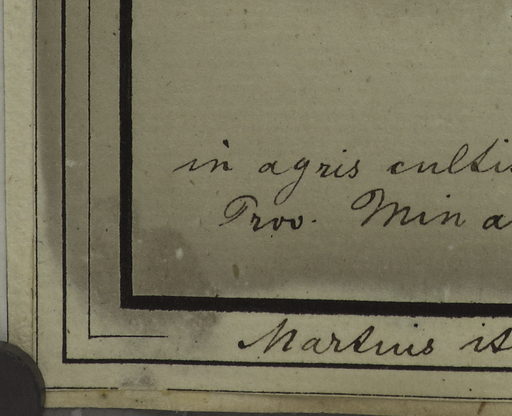 in agris culti
Prov. Mina
Martius it